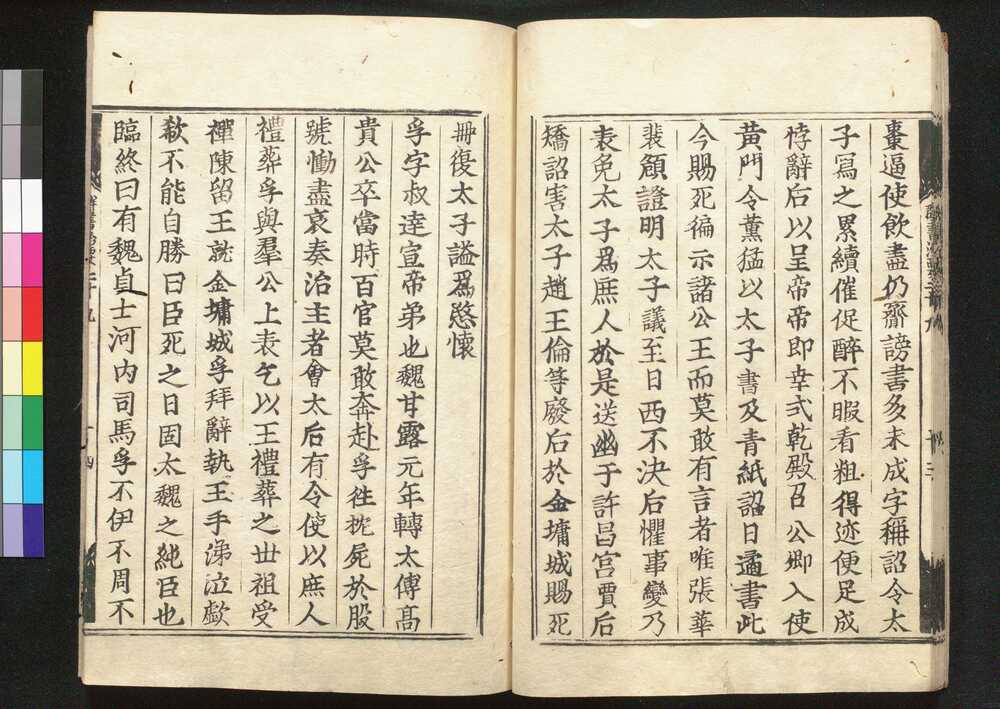 棗逼使飲盡仍齎謗書多未成字稱詔令太
子寫之累續催促醉不暇看粗得迹便足成
悖辭后以呈帝帝即幸式乾殿召公卿入使
黃門令董猛以太子書及青紙詔曰遹書此
今賜死徧示諸公王而莫敢有言者唯張華
裴頠證明太子議至日西不決后懼事變乃
表免太子爲庶人於是送幽于許昌宮賈后
矯詔害太子趙王倫等廢后於金墉城賜死
冊復太子謚爲愍懷
孚字叔達宣帝弟也魏甘露元年轉太傅髙
貴公卒當時百官莫敢奔赴孚徃枕屍於股
號慟盡哀奏治主者會太后有令使以庶人
禮葬孚與羣公上表乞以王禮葬之丗祖受
禪陳留王就金墉城孚拜辭執王手涕泣歔
欷不能自勝曰臣死之日固太魏之純臣也
臨終曰有魏貞士河內司馬孚不伊不周不